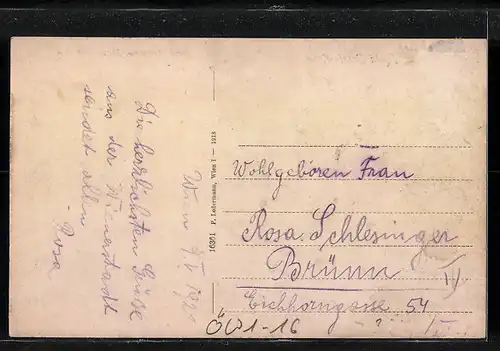 Die herzlichsten Grüße
aus der Wienerstadt
sendet allen
Rosa
Wien
16351 P. Ledermann, Wien I — 1918
Wohlgeboren Frau
Rosa Schlesinger
Brünn
Eichhorngasse 54
ÖW1-16